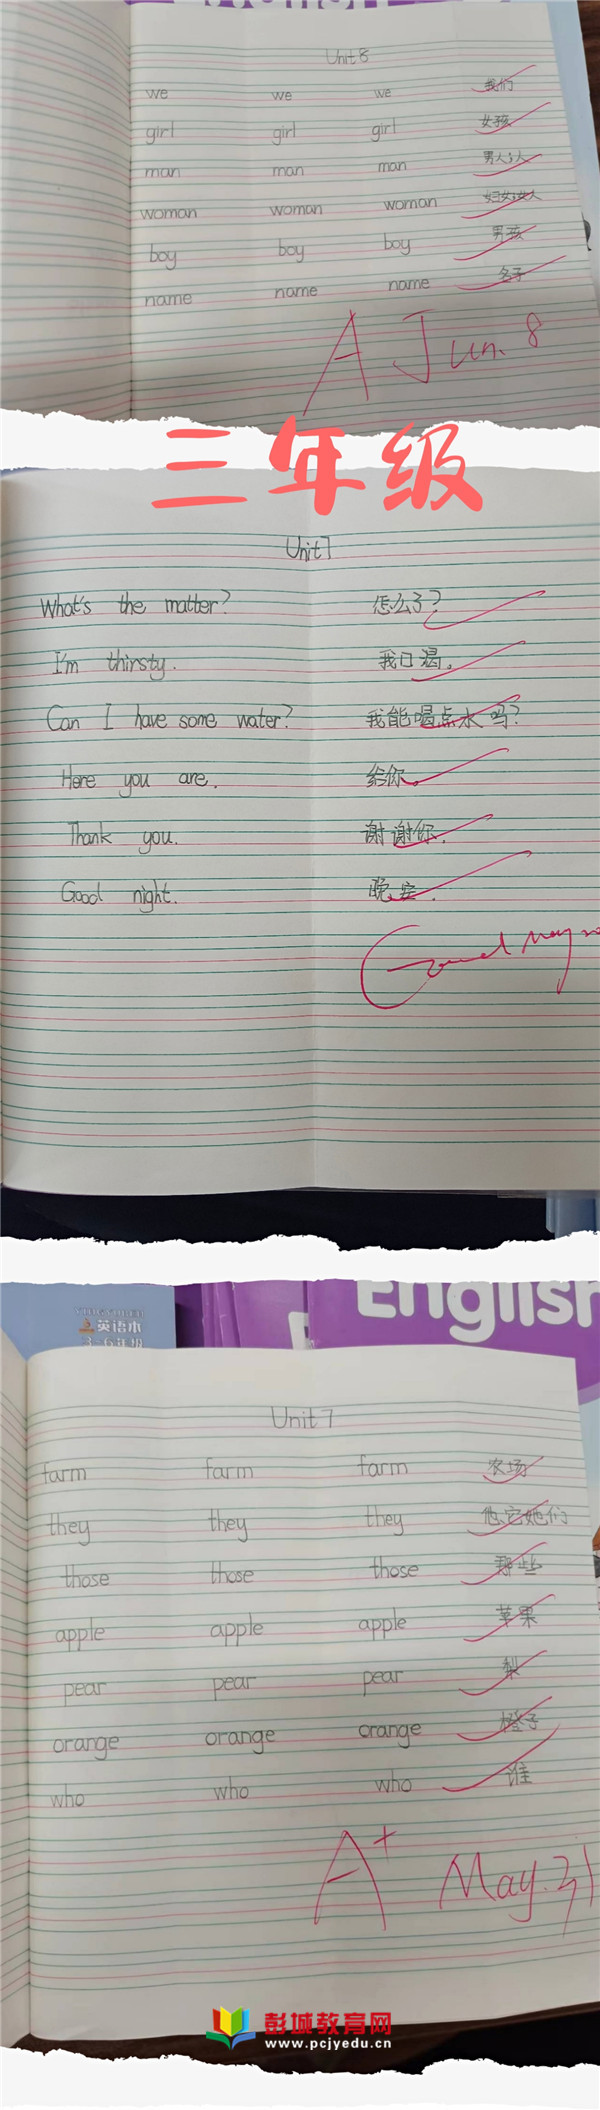 Unit 8
we we we 我们
girl girl girl 女孩
man man man 男人;人
woman woman woman 妇女;女人
boy boy boy 男孩
name name name 名子
A Jun. 8
三年级
Unit 7
What's the matter? 怎么了?
I'm thirsty. 我口渴。
Can I have some water? 我能喝点水吗?
Here you are. 给你。
Thank you. 谢谢你.
Good night. 晚安.
Good May
English
英语本
3-6年级
Unit 7
farm farm farm 农场
they they they 他它她们
those those those 那些
apple apple apple 苹果
pear pear pear 梨
orange orange orange 橙子
who who who 谁
A+ May. 31
彭城教育网
www.pcjyedu.cn